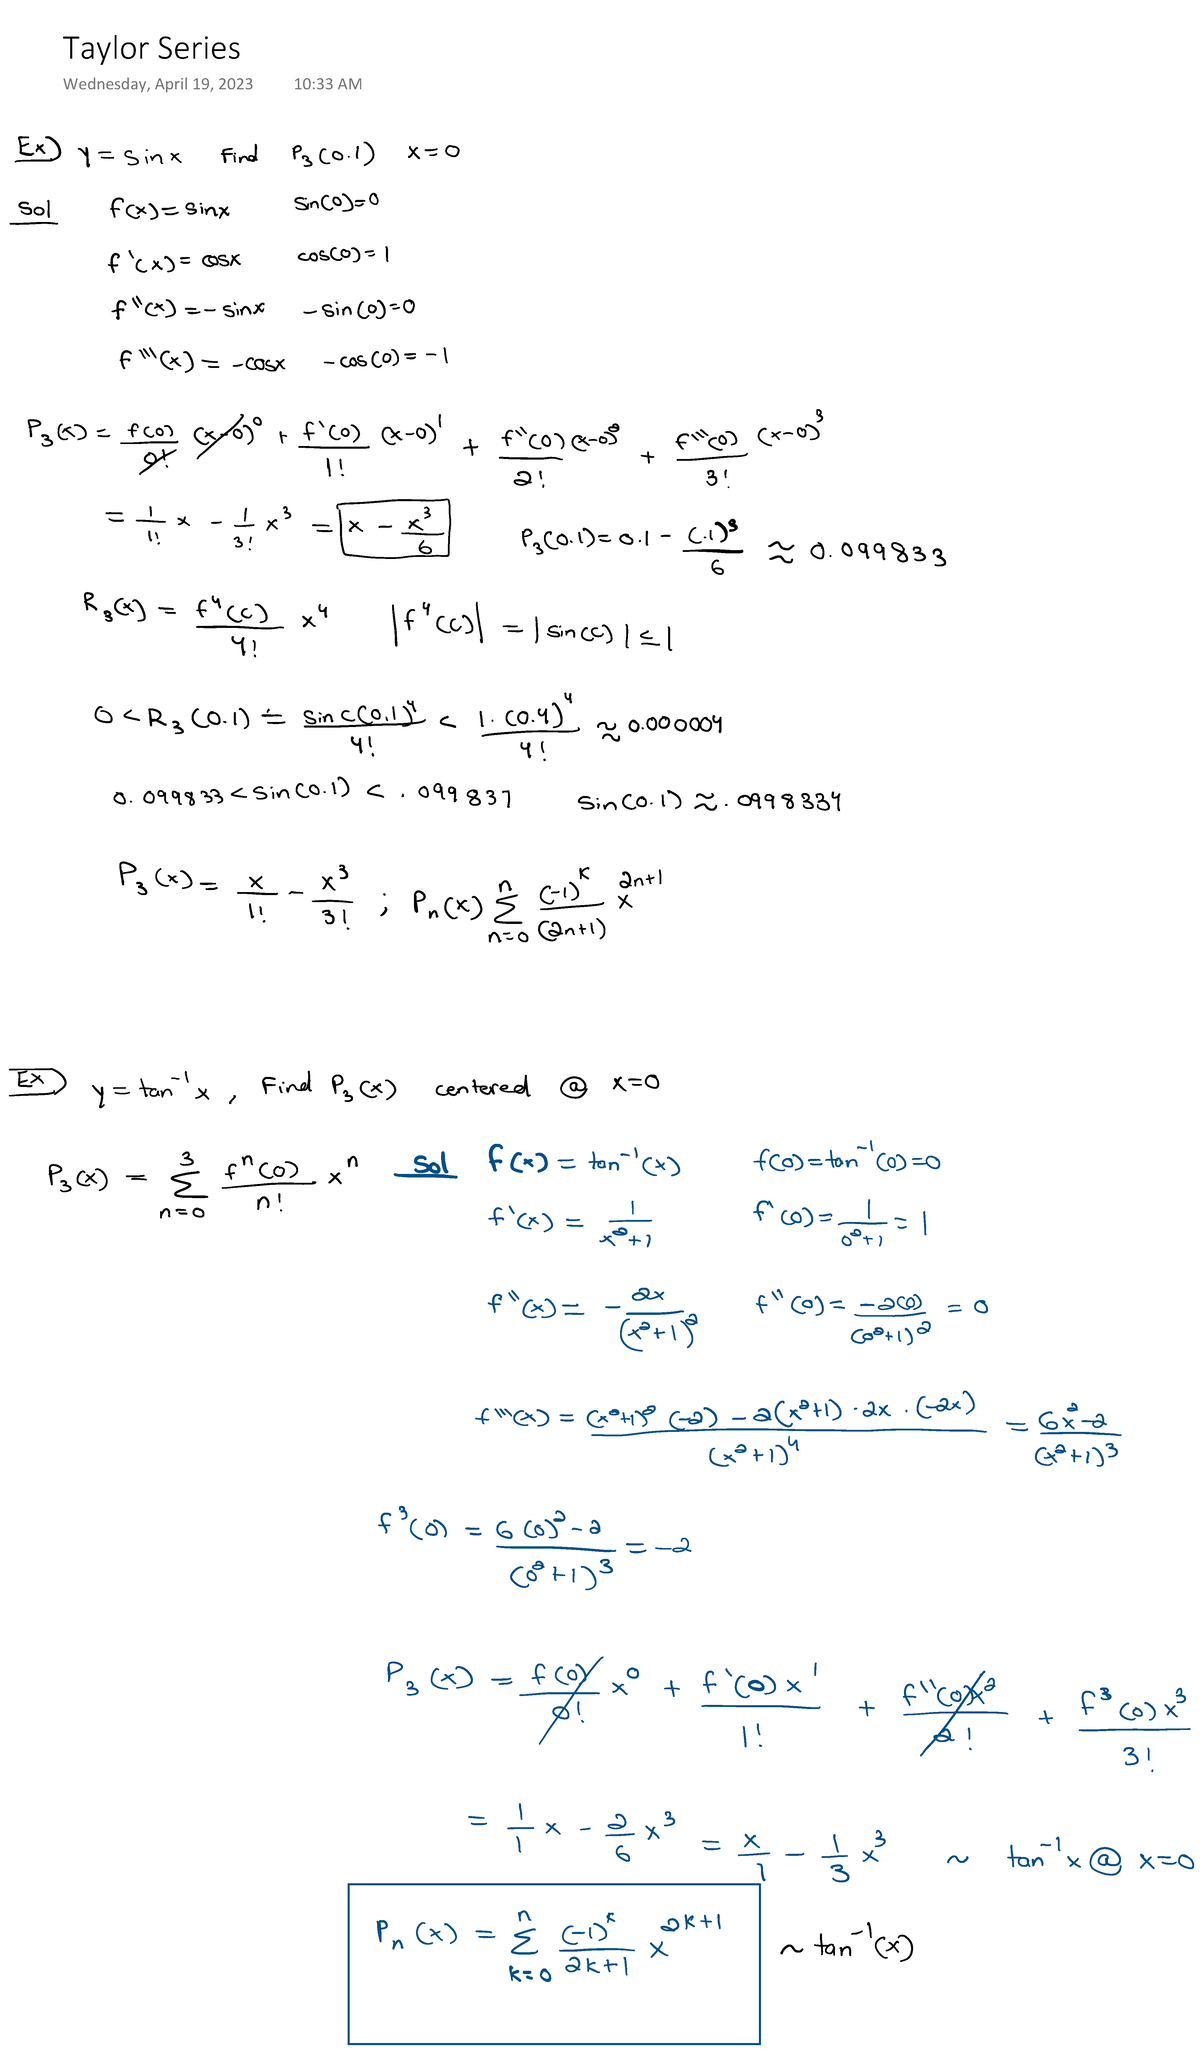 Taylor Series
Wednesday, April 19, 2023 10:33 AM
Ex) y = sinx Find P₃(0.1) x=0
Sol f(x)=sinx sin(0)=0
f'(x)=cosx cos(0)=1
f''(x)=-sinx -sin(0)=0
f'''(x)=-cosx -cos(0)=-1
P₃(x)= f(0)/0! (x-0)⁰ + f'(0)/1! (x-0)¹ + f''(0)(x-0)²/2! + f'''(0)/3! (x-0)³
= 1/1! x - 1/3! x³ = x - x³/6 P₃(0.1)=0.1 - (.1)³/6 ≈ 0.099833
R₃(x) = f⁴(c)/4! x⁴ |f⁴(c)| = |sin(c)| ≤ 1
0 < R₃(0.1) = sin c(0.1)⁴/4! < 1.(0.4)⁴/4! ≈ 0.000004
0.099833 < sin(0.1) < .099837 sin(0.1) ≈ .0998334
P₃(x) = x/1! - x³/3! ; Pₙ(x) Σ n n=0 (-1)ᵏ/(2n+1) x²ⁿ⁺¹
Ex) y = tan⁻¹x , Find P₃(x) centered @ x=0
P₃(x) = Σ 3 n=0 fⁿ(0)/n! xⁿ Sol f(x) = tan⁻¹(x) f(0)=tan⁻¹(0)=0
f'(x) = 1/(x²+1) f'(0) = 1/(0²+1) = 1
f''(x) = - 2x/(x²+1)² f''(0) = -2(0)/(0²+1)² = 0
f'''(x) = (x²+1)²(-2) - 2(x²+1)·2x·(-2x)/(x²+1)⁴ = 6x²-2/(x²+1)³
f³(0) = 6(0)²-2/(0²+1)³ = -2
P₃(x) = f(0)/0! x⁰ + f'(0)x¹/1! + f''(0)x²/2! + f³(0)x³/3!
= 1/1 x - 2/6 x³ = x/1 - 1/3 x³ ~ tan⁻¹x @ x=0
Pₙ(x) = Σ n k=0 (-1)ᵏ/2k+1 x²ᵏ⁺¹ ~ tan⁻¹(x)